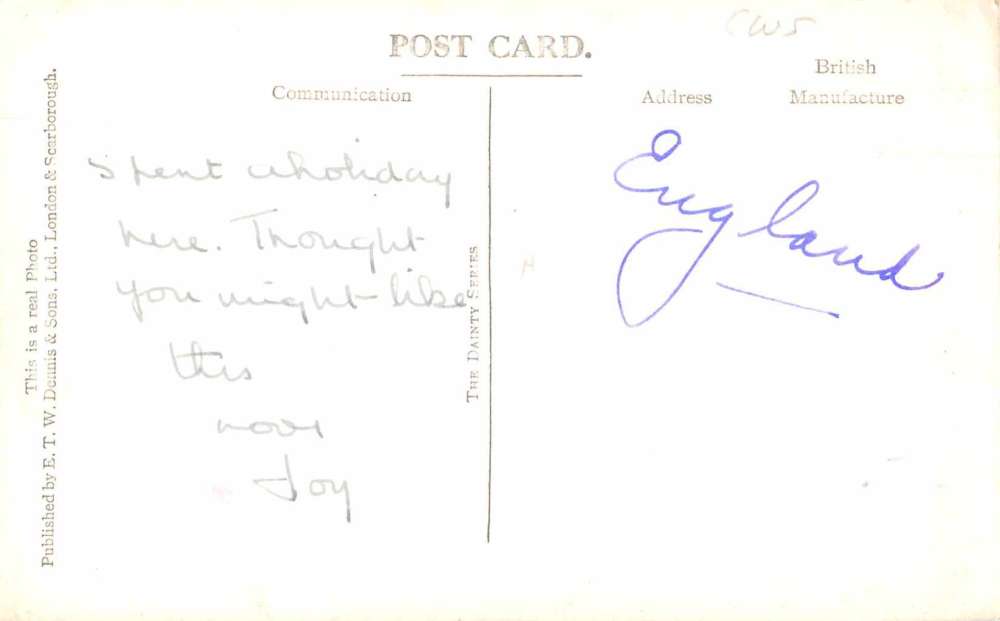 CWS
POST CARD.
British
Manufacture
Communication
Address
Spent a holiday
here. Thought
you might like
this
Joy
England
THE DAINTY SERIES
This is a real Photo
Published by E. T. W. Dennis & Sons, Ltd., London & Scarborough.